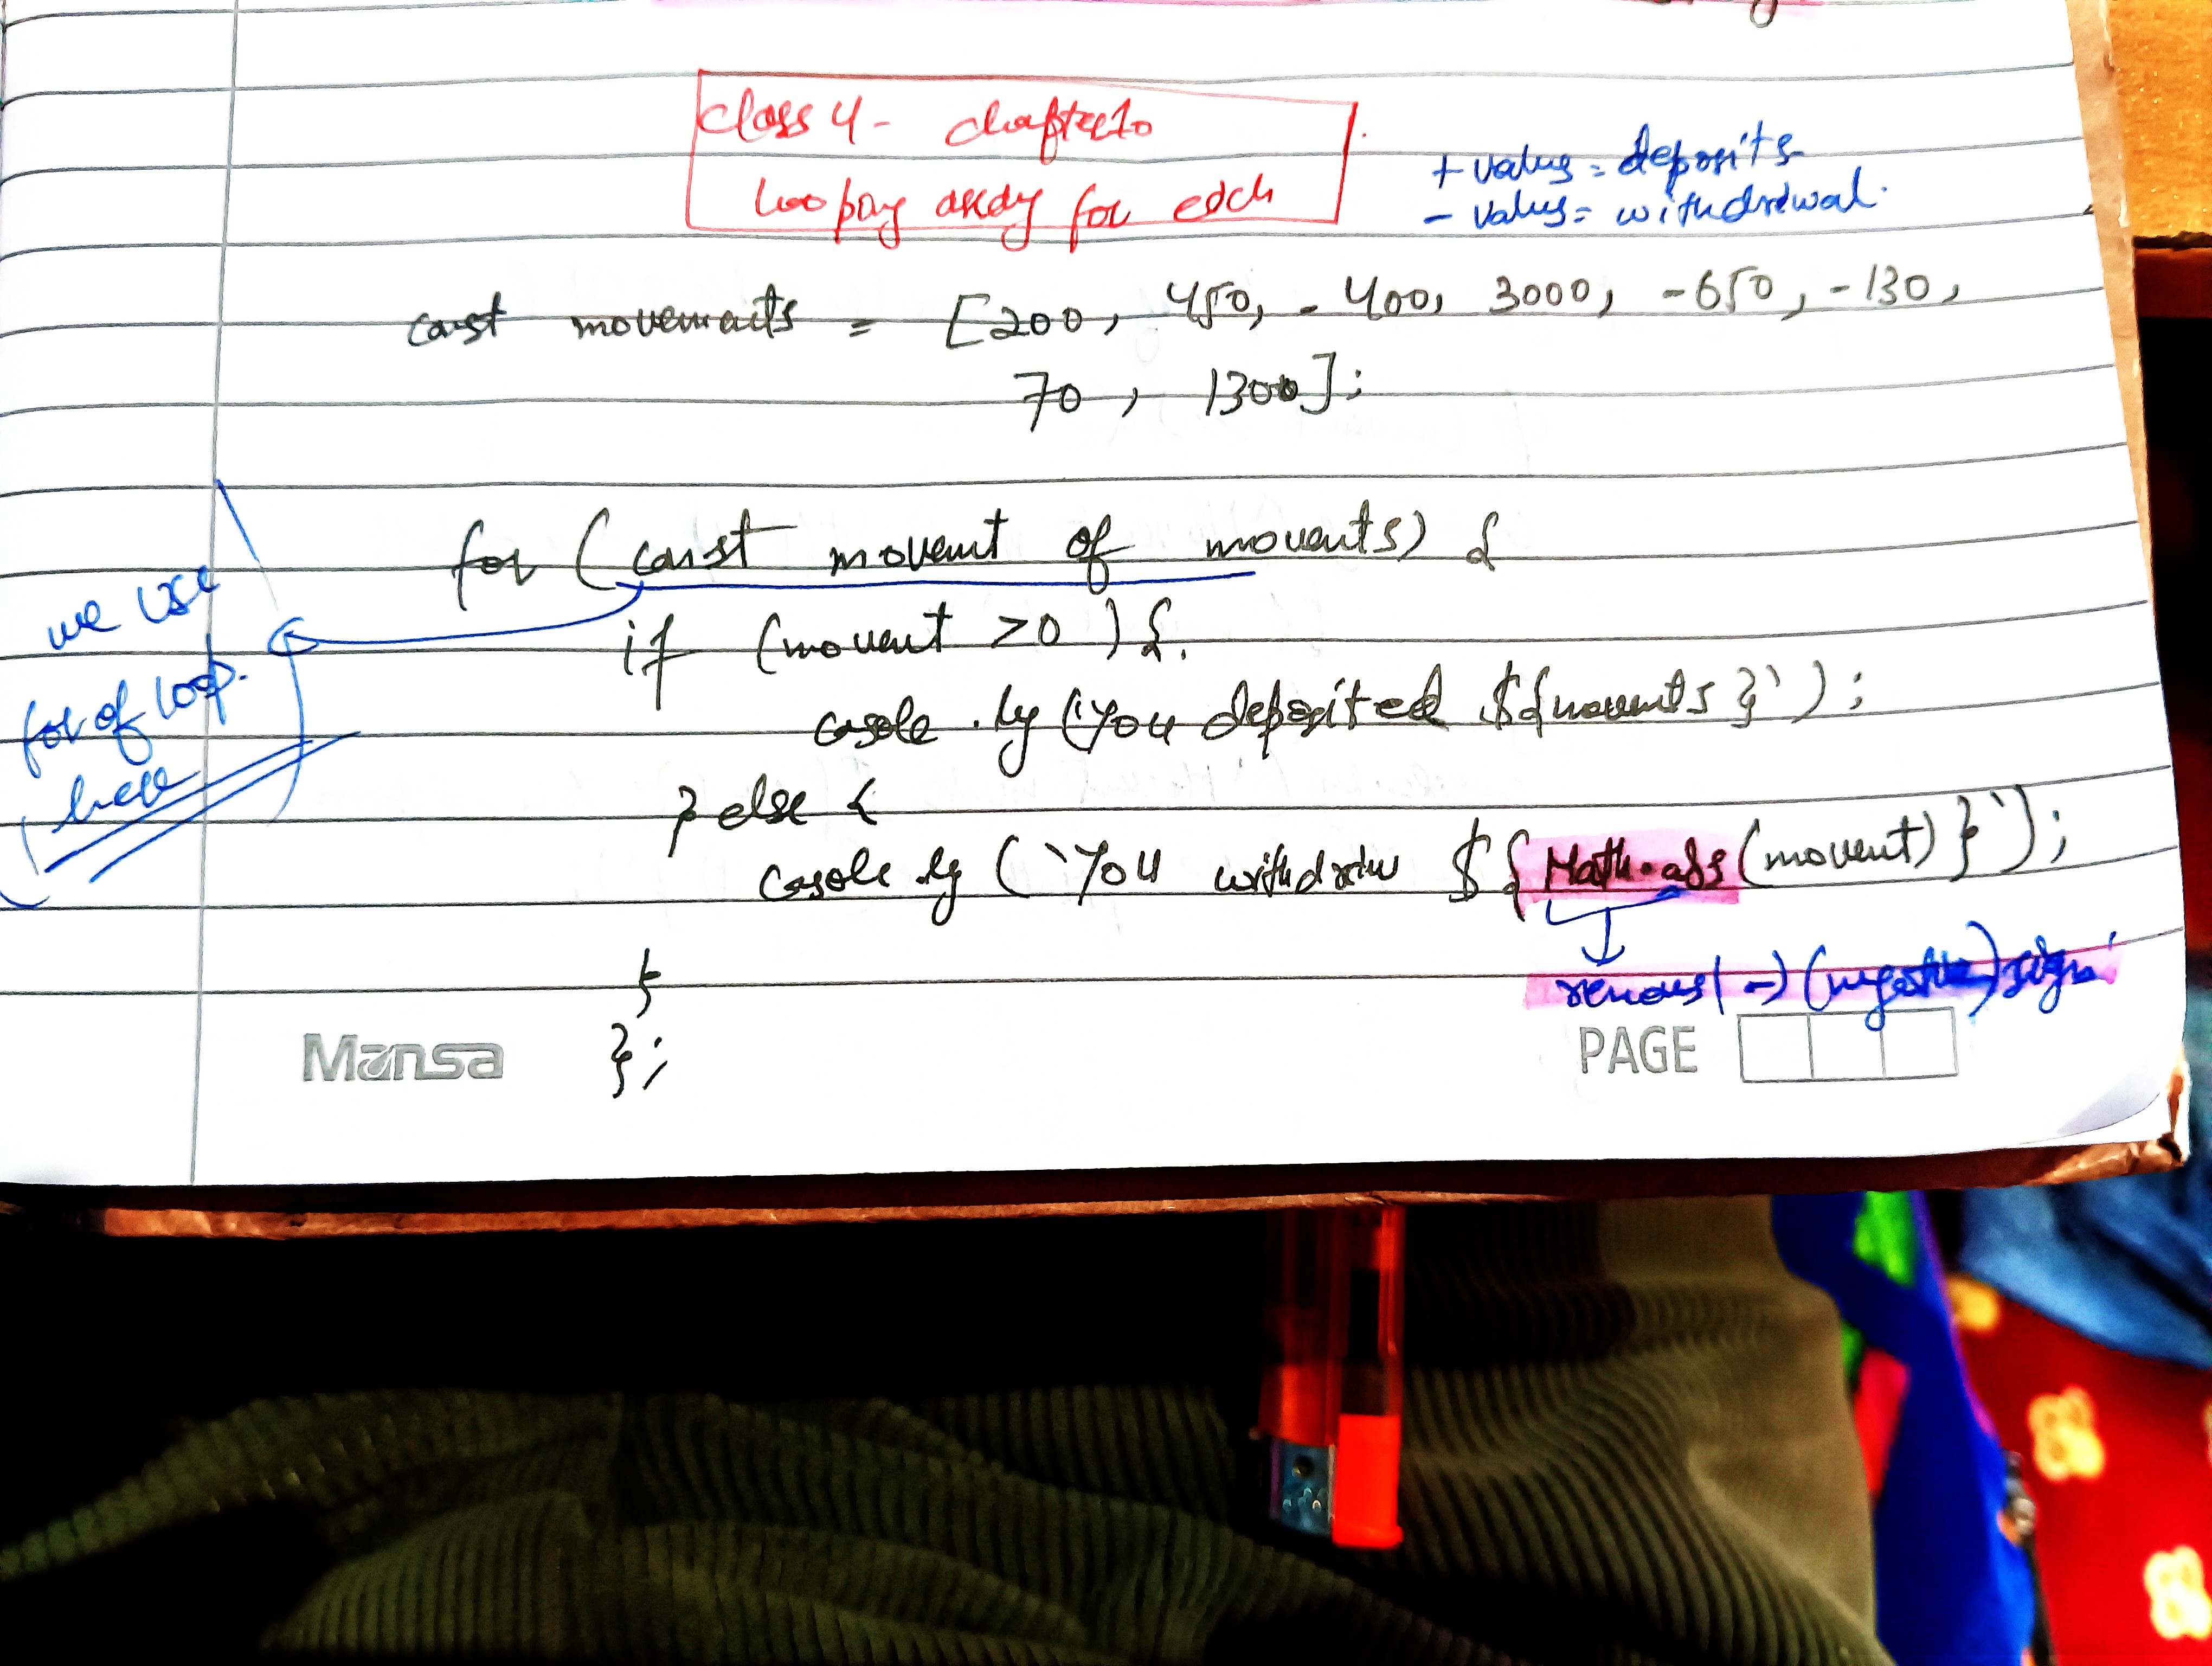 class 4 - chapter 10
looping array for each
+ values = deposits
- values = withdrawal.
const movements = [200, 450, -400, 3000, -650, -130,
70, 1300];
for (const movement of movements) {
we use
for of loop.
here
if (movement >0) {
console.log(`You deposited ${movements}`);
} else {
console.log (`You withdrew ${Math.abs(movement)}`);
removes (-) (negative) sign
}
};
Mansa
PAGE